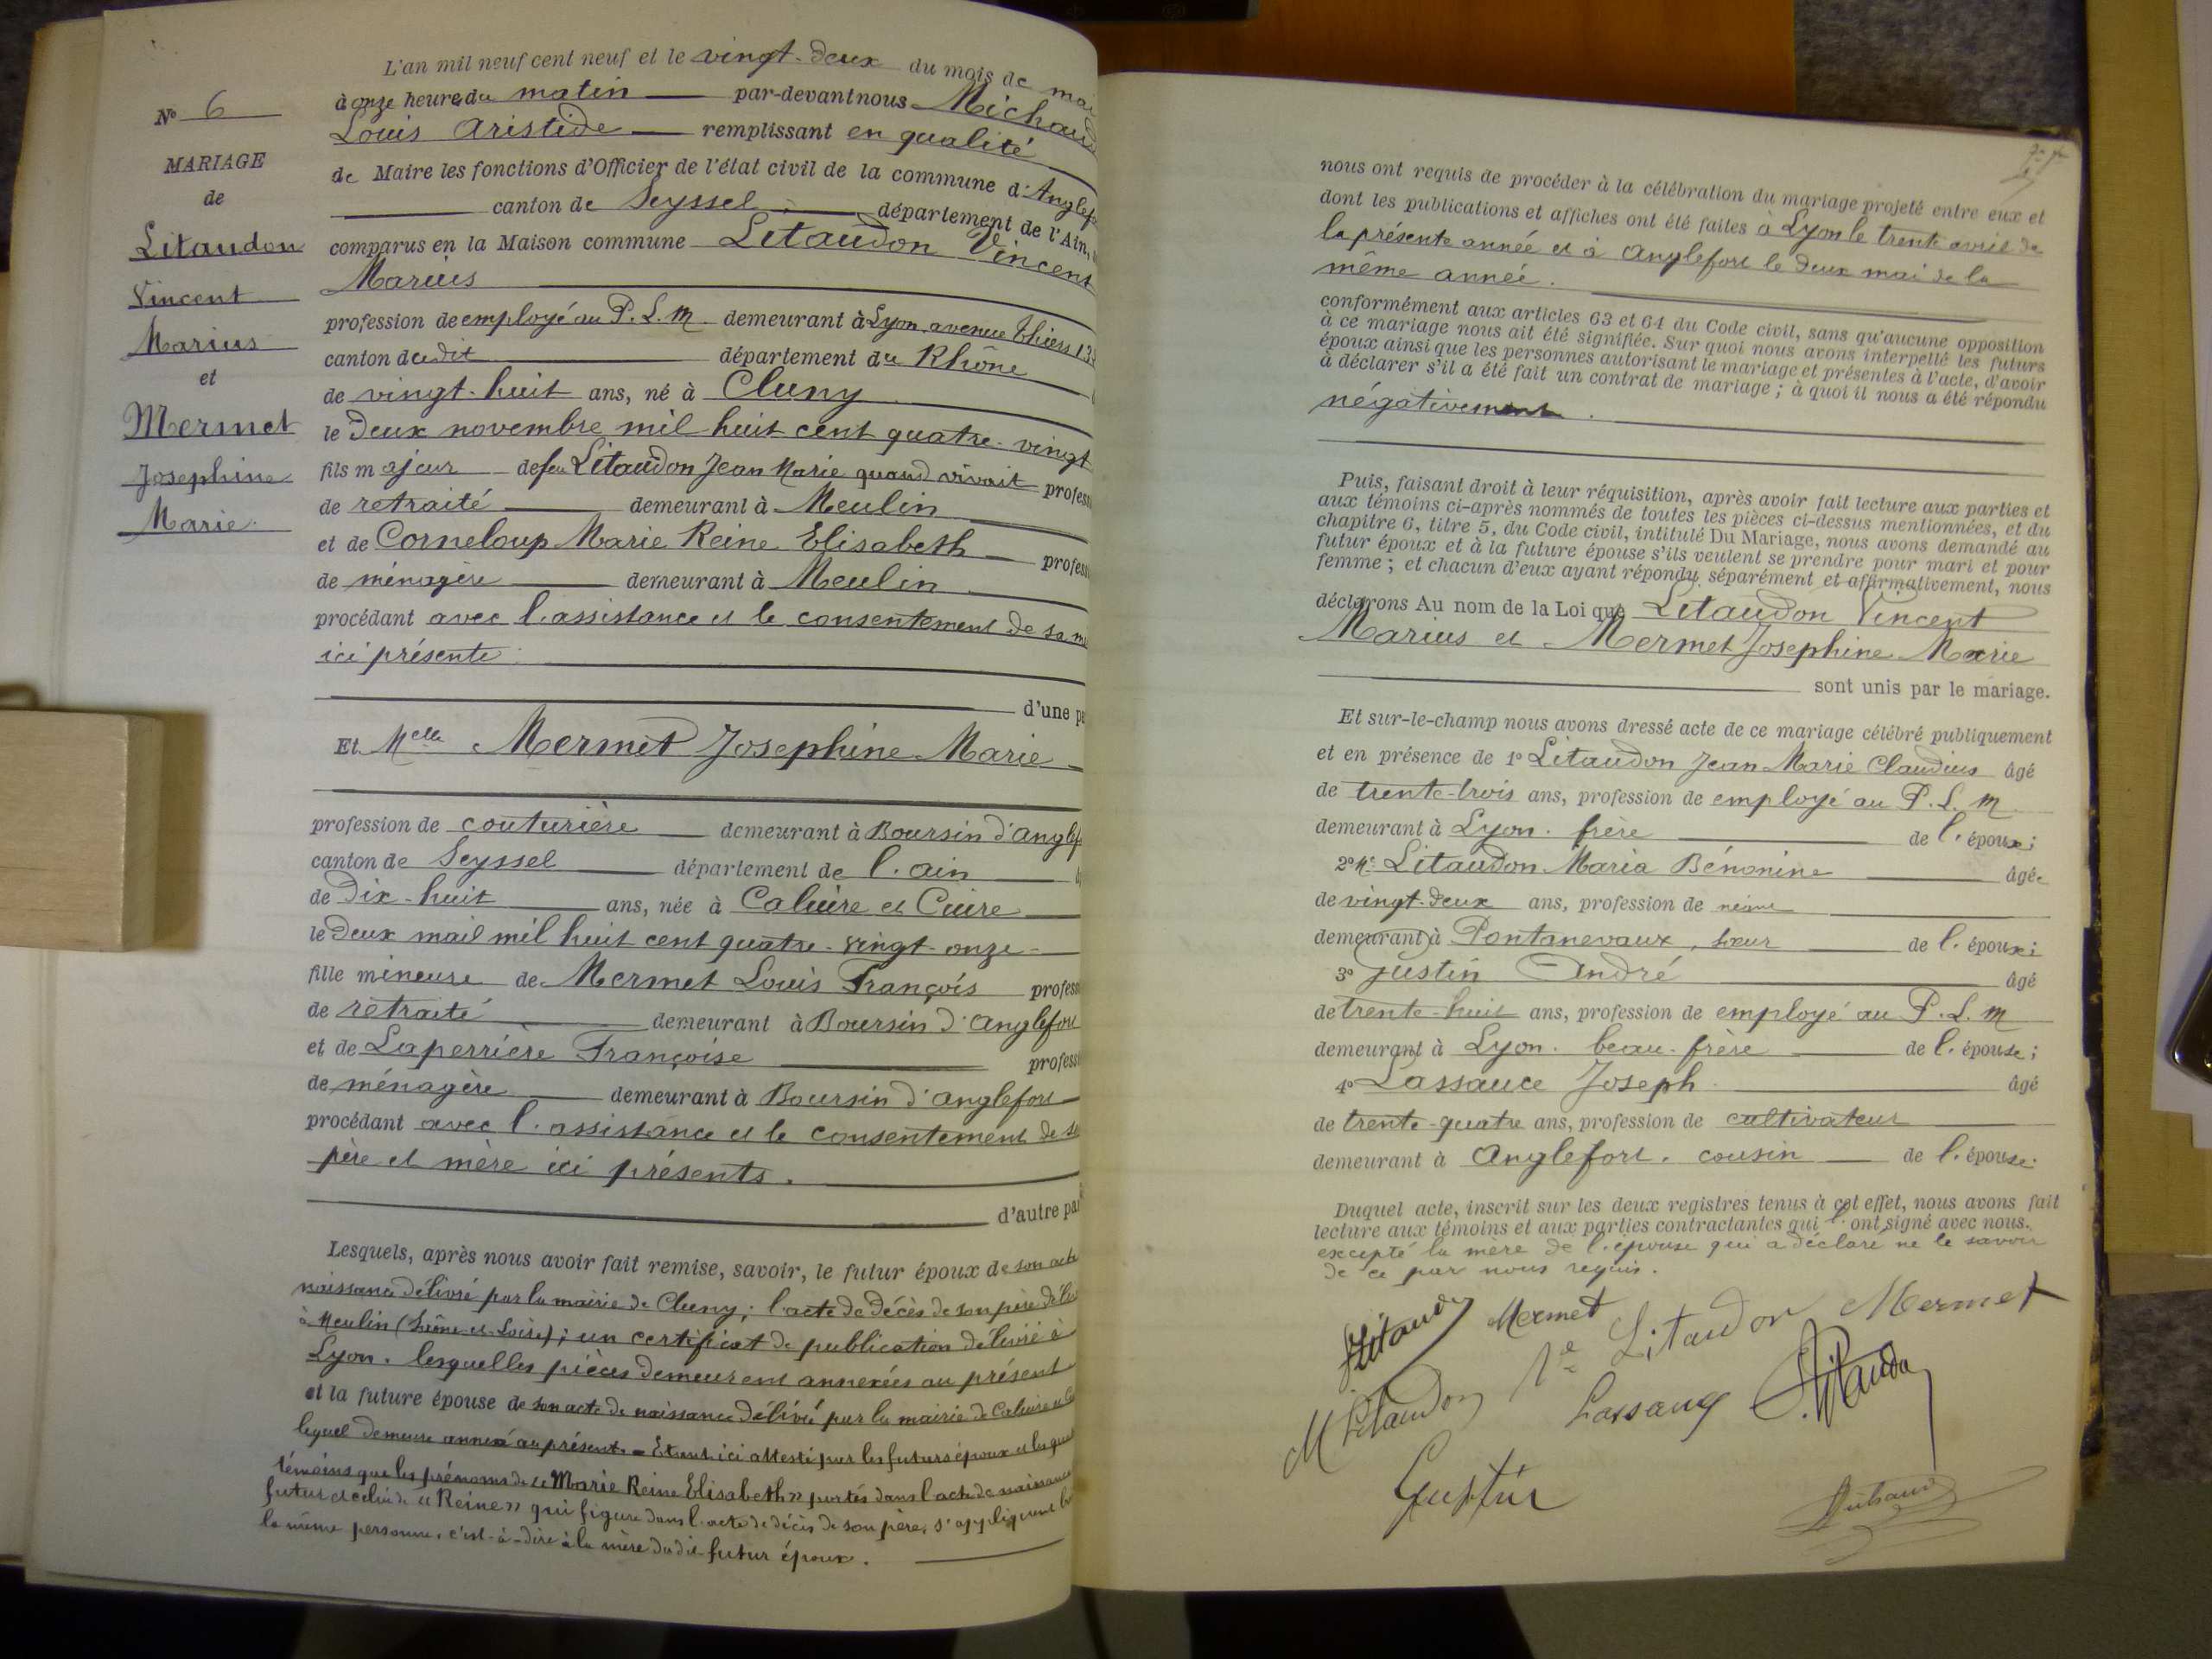 L'an mil neuf cent neuf et le vingt-deux du mois de mai
à onze heures du matin par-devant nous Michaud
Louis Aristide remplissant en qualité
de Maire les fonctions d'Officier de l'état civil de la commune d'Anglefo
canton de Seyssel département de l'Ain,
comparus en la Maison commune Litaudon Vincent
Marius
profession de employé au P.L.M demeurant à Lyon, avenue Thiers 13
canton dudit département du Rhône
de vingt-huit ans, né à Cluny
le deux novembre mil huit cent quatre-vingt
fils majeur de feu Litaudon Jean Marie quand vivait profess
de retraité demeurant à Meulin
et de Corneloup Marie Reine Elisabeth profess
de ménagère demeurant à Meulin
procédant avec l'assistance et le consentement de sa m
ici présente
d'une pa
Et Melle Mermet Josephine Marie
profession de couturière demeurant à Boursin d'Anglef
canton de Seyssel département de l'Ain
de Dix-huit ans, née à Caluire et Cuire
le Deux mail mil huit cent quatre-vingt-onze
fille mineure de Mermet Louis François profess
de retraité demeurant à Boursin d'Anglefort
et de Laperrière Françoise profess
de ménagère demeurant à Boursin d'Anglefort
procédant avec l'assistance et le consentement de se
père et mère ici présents.
d'autre pa
Lesquels, après nous avoir fait remise, savoir, le futur époux de son acte
naissance délivré par la mairie de Cluny; l'acte de décès de son père déli
à Meulin (Saône et Loire); un certificat de publication délivré à
Lyon. lesquelles pièces demeurent annexées au présent
et la future épouse de son acte de naissance délivré par la mairie de Caluire et Cu
lequel demeure annexé au présent. - Etant ici attesté par les futurs époux et les quat
témoins que les prénoms de « Marie Reine Elisabeth » portés dans l'acte de naissance
futur et celui de « Reine » qui figure dans l'acte de décès de son père, s'appliquent
la même personne, c'est-à-dire à la mère dudit futur époux.
N° 6
MARIAGE
de
Litaudon
Vincent
Marius
et
Mermet
Josephine
Marie.
nous ont requis de procéder à la célébration du mariage projeté entre eux et
dont les publications et affiches ont été faites à Lyon le trente avril de
la présente année et à Anglefort le deux mai de la
même année.
conformément aux articles 63 et 64 du Code civil, sans qu'aucune opposition
à ce mariage nous ait été signifiée. Sur quoi nous avons interpellé les futurs
époux ainsi que les personnes autorisant le mariage et présentes à l'acte, d'avoir
à déclarer s'il a été fait un contrat de mariage ; à quoi il nous a été répondu
négativement.
Puis, faisant droit à leur réquisition, après avoir fait lecture aux parties et
aux témoins ci-après nommés de toutes les pièces ci-dessus mentionnées, et du
chapitre 6, titre 5, du Code civil, intitulé Du Mariage, nous avons demandé au
futur époux et à la future épouse s'ils veulent se prendre pour mari et pour
femme ; et chacun d'eux ayant répondu séparément et affirmativement, nous
déclarons Au nom de la Loi que Litaudon Vincent
Marius et Mermet Josephine Marie
sont unis par le mariage.
Et sur-le-champ nous avons dressé acte de ce mariage célébré publiquement
et en présence de 1° Litaudon Jean Marie Claudius âgé
de trente-trois ans, profession de employé au P.L.M
demeurant à Lyon. frère de l'époux;
2° Litaudon Maria Bénonine âgée
de vingt-deux ans, profession de
demeurant à Pontanevaux, sœur de l'époux;
3° Justin André âgé
de trente-huit ans, profession de employé au P.L.M
demeurant à Lyon. beau-frère de l'épouse;
4° Lassauce Joseph âgé
de trente-quatre ans, profession de cultivateur
demeurant à Anglefort. cousin de l'épouse
Duquel acte, inscrit sur les deux registres tenus à cet effet, nous avons fait
lecture aux témoins et aux parties contractantes qui l'ont signé avec nous.
excepté la mère de l'épouse qui a déclaré ne le savoir
de ce par nous requis.
Litaudon Mermet Ve Litaudon Mermet
M Litaudon Lassauce Litaudon
Justin Michaud